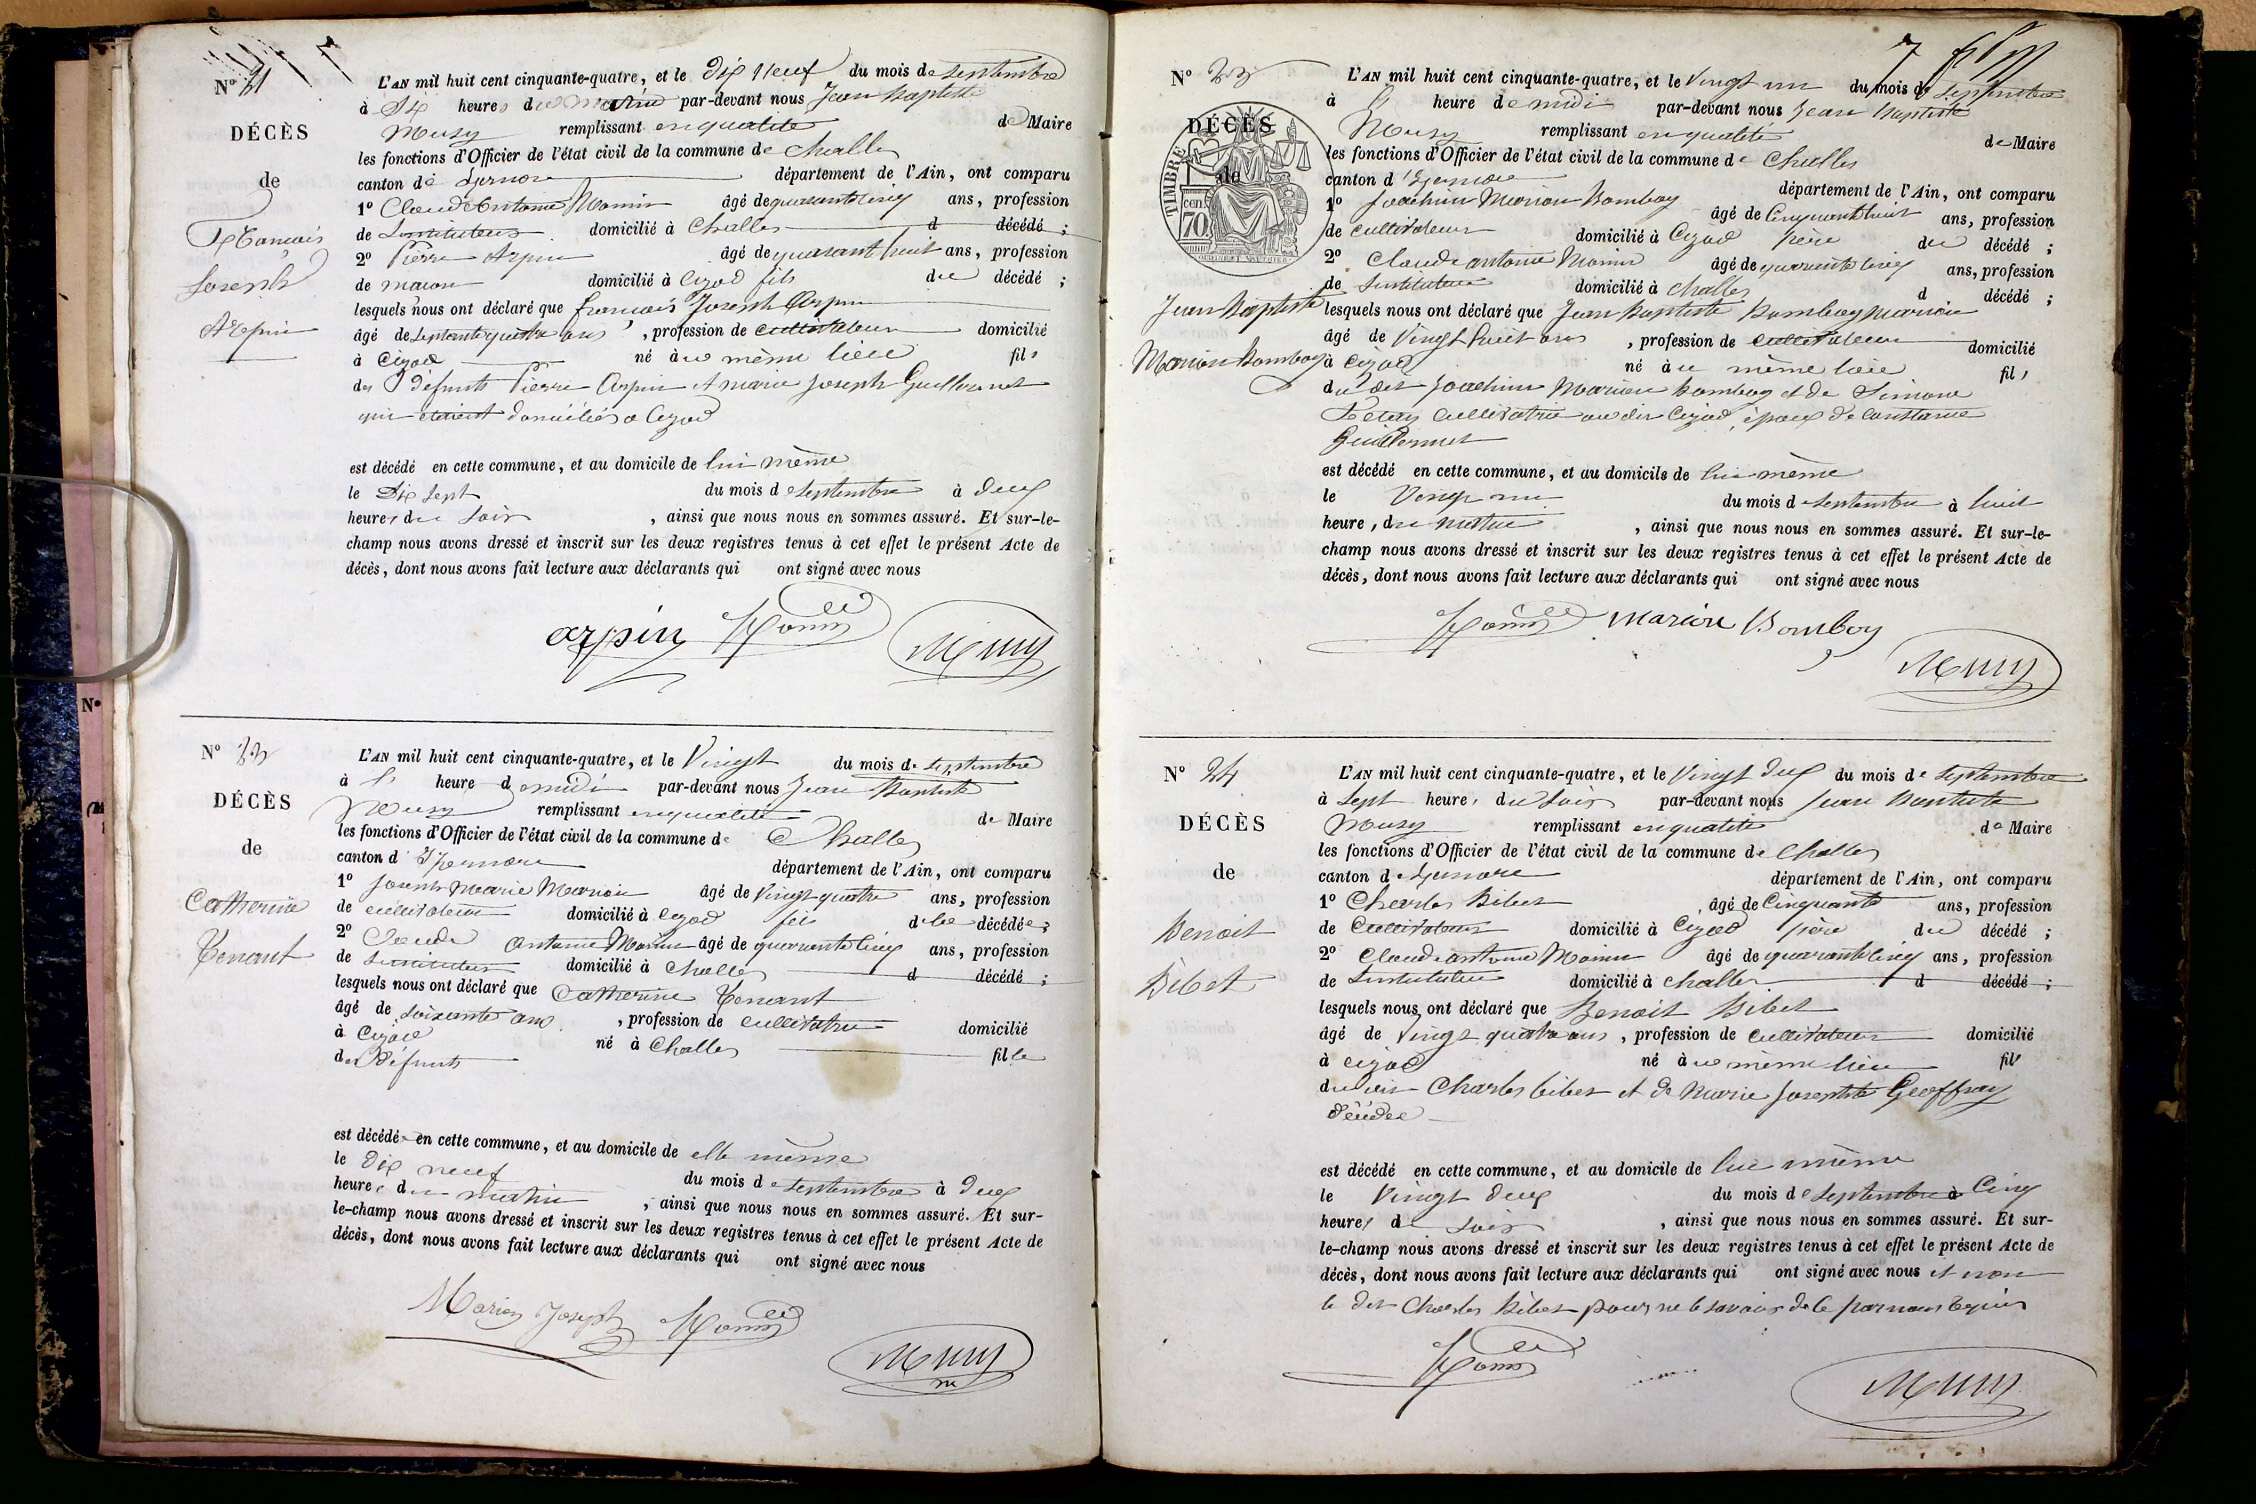 N° 21
DÉCÈS
de
François
Joseph
Arpin
L'AN mil huit cent cinquante-quatre, et le dix neuf du mois de septembre
à dix heures du matin par-devant nous Jean Baptiste
Musy remplissant en qualité de Maire
les fonctions d'Officier de l'état civil de la commune de Challes
canton de département de l'Ain, ont comparu
1° Claude Antoine Monin âgé de quarante cinq ans, profession
de Instituteur domicilié à Challes d décédé ;
2° Pierre Arpin âgé de quarante huit ans, profession
de macon domicilié à Cizod fils du décédé ;
lesquels nous ont déclaré que francois Joseph Arpin
âgé de septante quatre ans, profession de cultivateur domicilié
à Cizod né au même lieu fils
des défunts Pierre Arpin et marie Joseph Guillermet
qui étaient domiciliés a Cizod
est décédé en cette commune, et au domicile de lui même
le Dix sept du mois de septembre à deux
heures du soir, ainsi que nous nous en sommes assuré. Et sur-le-
champ nous avons dressé et inscrit sur les deux registres tenus à cet effet le présent Acte de
décès, dont nous avons fait lecture aux déclarants qui ont signé avec nous
arpin Monin Musy
N° 22
DÉCÈS
de
Catherine
Tenant
L'AN mil huit cent cinquante-quatre, et le Vingt du mois de septembre
à heure de midi par-devant nous Jean Baptiste
Musy remplissant en qualité de Maire
les fonctions d'Officier de l'état civil de la commune de Challes
canton d département de l'Ain, ont comparu
1° Joseph Marie Marion âgé de Vingt quatre ans, profession
de cultivateur domicilié à Cizod fils de la décédée ;
2° Claude Antoine Monin âgé de quarante cinq ans, profession
de Instituteur domicilié à Challes d décédé ;
lesquels nous ont déclaré que Catherine Tenant
âgé de soixante ans, profession de cultivatrice domicilié
à Cizod né à Challes fille
des Défunts
est décédé en cette commune, et au domicile de elle même
le Dix neuf du mois de septembre à deux
heures du matin, ainsi que nous nous en sommes assuré. Et sur-
le-champ nous avons dressé et inscrit sur les deux registres tenus à cet effet le présent Acte de
décès, dont nous avons fait lecture aux déclarants qui ont signé avec nous
Marion Joseph Monin Musy
N° 23
DÉCÈS
de
TIMBRE
70
Jean Baptiste
Marion Bomboy
L'AN mil huit cent cinquante-quatre, et le Vingt un du mois de septembre
à heure de midi par-devant nous Jean Baptiste
Musy remplissant en qualité de Maire
les fonctions d'Officier de l'état civil de la commune de Challes
canton d département de l'Ain, ont comparu
1° Joachim Marion Bomboy âgé de Cinquante huit ans, profession
de cultivateur domicilié à Cizod père du décédé ;
2° Claude antoine Monin âgé de quarante cinq ans, profession
de Instituteur domicilié à Challes d décédé ;
lesquels nous ont déclaré que Jean Baptiste Bomboy Marion
âgé de Vingt huit ans, profession de cultivateur domicilié
à Cizod né au même lieu fils
du dit Joachim Marion Bomboy et de Simone
cultivatrice au dit Cizod, époux de Constance
Guillermet
est décédé en cette commune, et au domicile de lui même
le Vingt un du mois de septembre à huit
heure, du matin, ainsi que nous nous en sommes assuré. Et sur-le-
champ nous avons dressé et inscrit sur les deux registres tenus à cet effet le présent Acte de
décès, dont nous avons fait lecture aux déclarants qui ont signé avec nous
Monin Marion Bomboy
Musy
N° 24
DÉCÈS
de
Benoit
Bibet
L'AN mil huit cent cinquante-quatre, et le Vingt deux du mois de septembre
à Sept heures du soir par-devant nous Jean Baptiste
Musy remplissant en qualité de Maire
les fonctions d'Officier de l'état civil de la commune de Challes
canton d département de l'Ain, ont comparu
1° Charles Bibet âgé de Cinquante ans, profession
de Cultivateur domicilié à Cizod père du décédé ;
2° Claude antoine Monin âgé de quarante cinq ans, profession
de Instituteur domicilié à Challes d décédé ;
lesquels nous ont déclaré que Benoit Bibet
âgé de Vingt quatre ans, profession de cultivateur domicilié
à Cizod né au même lieu fils
du dit Charles bibet et de Marie Josephte Geoffray
est décédé en cette commune, et au domicile de lui même
le Vingt deux du mois de septembre à Cinq
heures d soir, ainsi que nous nous en sommes assuré. Et sur-
le-champ nous avons dressé et inscrit sur les deux registres tenus à cet effet le présent Acte de
décès, dont nous avons fait lecture aux déclarants qui ont signé avec nous et non
le dit Charles Bibet pour ne le savoir de ce par nous requis
Monin Musy